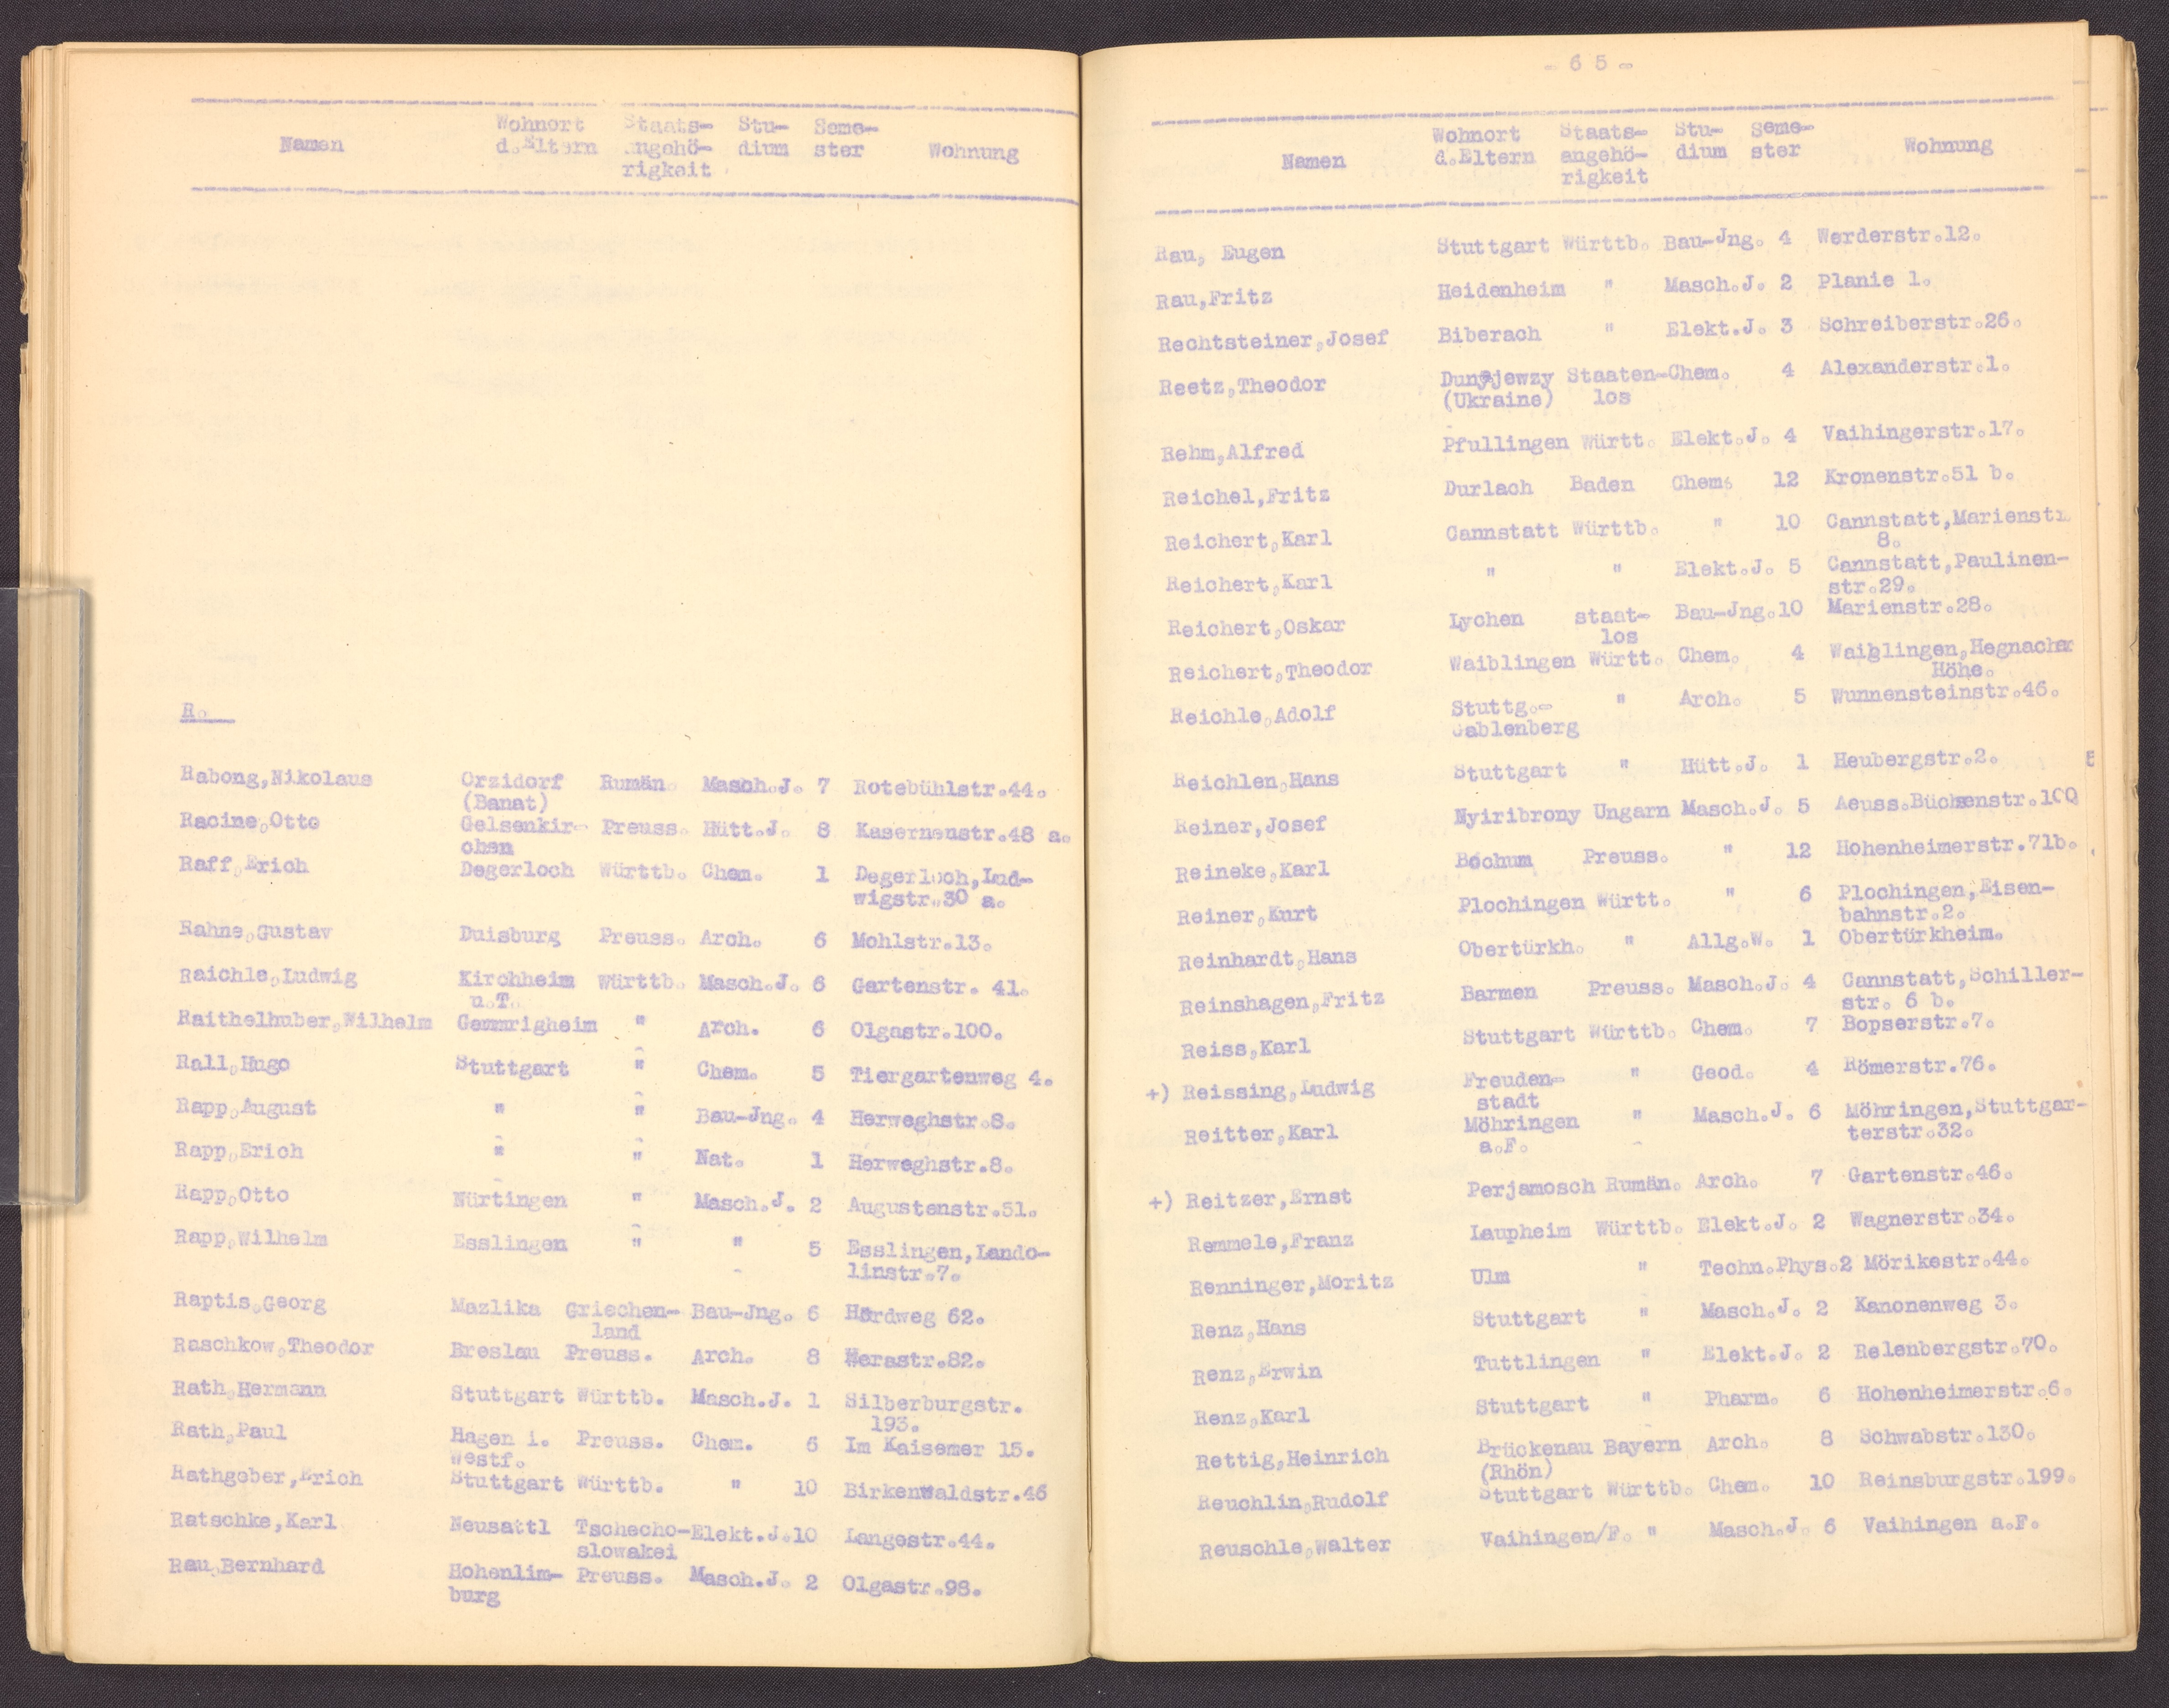 Namen Wohnort d.Eltern Staats- angehö- rigkeit Stu- dium Seme- ster Wohnung
R.
Rabong,Nikolaus Orzidorf Rumän. Masch.J. 7 Rotebühlstr.44.
(Banat)
Racine,Otto Gelsenkir- Preuss. Hütt.J. 8 Kasernenstr.48 a.
chen
Raff,Erich Degerloch Württb. Chem. 1 Degerloch,Lud-
wigstr.30 a.
Rahne,Gustav Duisburg Preuss. Arch. 6 Mohlstr.13.
Raichle,Ludwig Kirchheim Württb. Masch.J. 6 Gartenstr. 41.
u.T.
Raithelhuber,Wilhelm Gemmrigheim " Arch. 6 Olgastr.100.
Rall,Hugo Stuttgart " Chem. 5 Tiergartenweg 4.
Rapp,August " " Bau-Jng. 4 Herweghstr.8.
Rapp,Erich " " Nat. 1 Herweghstr.8.
Rapp,Otto Nürtingen " Masch.J. 2 Augustenstr.51.
Rapp,Wilhelm Esslingen " " 5 Esslingen,Lando-
linstr.7.
Raptis,Georg Mazlika Griechen- Bau-Jng. 6 Herdweg 62.
land
Raschkow,Theodor Breslau Preuss. Arch. 8 Werastr.82.
Rath,Hermann Stuttgart Württb. Masch.J. 1 Silberburgstr.
193.
Rath,Paul Hagen i. Preuss. Chem. 6 Im Kaisemer 15.
Westf.
Rathgeber,Erich Stuttgart Württb. " 10 Birkenwaldstr.46
Ratschke,Karl Neusattl Tschecho-Elekt.J.10 Langestr.44.
slowakei
Rau,Bernhard Hohenlim- Preuss. Masch.J. 2 Olgastr.98.
burg
- 6 5 -
Namen Wohnort d.Eltern Staats- angehö- rigkeit Stu- dium Seme- ster Wohnung
Rau, Eugen Stuttgart Württb. Bau-Jng. 4 Werderstr.12.
Rau,Fritz Heidenheim " Masch.J. 2 Planie 1.
Rechtsteiner,Josef Biberach " Elekt.J. 3 Schreiberstr.26.
Reetz,Theodor Dunajewzy Staaten-Chem. 4 Alexanderstr.1.
(Ukraine) los
Rehm,Alfred Pfullingen Württ. Elekt.J. 4 Vaihingerstr.17.
Reichel,Fritz Durlach Baden Chem. 12 Kronenstr.51 b.
Reichert,Karl Cannstatt Württb. " 10 Cannstatt,Marienstr.
8.
Reichert,Karl " " Elekt.J. 5 Cannstatt,Paulinen-
str.29.
Reichert,Oskar Lychen staat- Bau-Jng.10 Marienstr.28.
los
Reichert,Theodor Waiblingen Württ. Chem. 4 Waiblingen,Hegnacher
Höhe.
Reichle,Adolf Stuttg.- " Arch. 5 Wunnensteinstr.46.
Gablenberg
Reichlen,Hans Stuttgart " Hütt.J. 1 Heubergstr.2.
Reiner,Josef Nyiribrony Ungarn Masch.J. 5 Aeuss.Büchsenstr.100
Reineke,Karl Bochum Preuss. " 12 Hohenheimerstr.71b.
Reiner,Kurt Plochingen Württ. " 6 Plochingen,Eisen-
bahnstr.2.
Reinhardt,Hans Obertürkh. " Allg.W. 1 Obertürkheim.
Reinshagen,Fritz Barmen Preuss. Masch.J. 4 Cannstatt,Schiller-
str. 6 b.
Reiss,Karl Stuttgart Württb. Chem. 7 Bopserstr.7.
+) Reissing,Ludwig Freuden- " Geod. 4 Römerstr.76.
stadt
Reitter,Karl Möhringen " Masch.J. 6 Möhringen,Stuttgar-
a.F. terstr.32.
+) Reitzer,Ernst Perjamosch Rumän. Arch. 7 Gartenstr.46.
Remmele,Franz Laupheim Württb. Elekt.J. 2 Wagnerstr.34.
Renninger,Moritz Ulm " Techn.Phys.2 Mörikestr.44.
Renz,Hans Stuttgart " Masch.J. 2 Kanonenweg 3.
Renz,Erwin Tuttlingen " Elekt.J. 2 Relenbergstr.70.
Renz,Karl Stuttgart " Pharm. 6 Hohenheimerstr.6.
Rettig,Heinrich Brückenau Bayern Arch. 8 Schwabstr.130.
(Rhön)
Reuchlin,Rudolf Stuttgart Württb. Chem. 10 Reinsburgstr.199.
Reuschle,Walter Vaihingen/F. " Masch.J. 6 Vaihingen a.F.